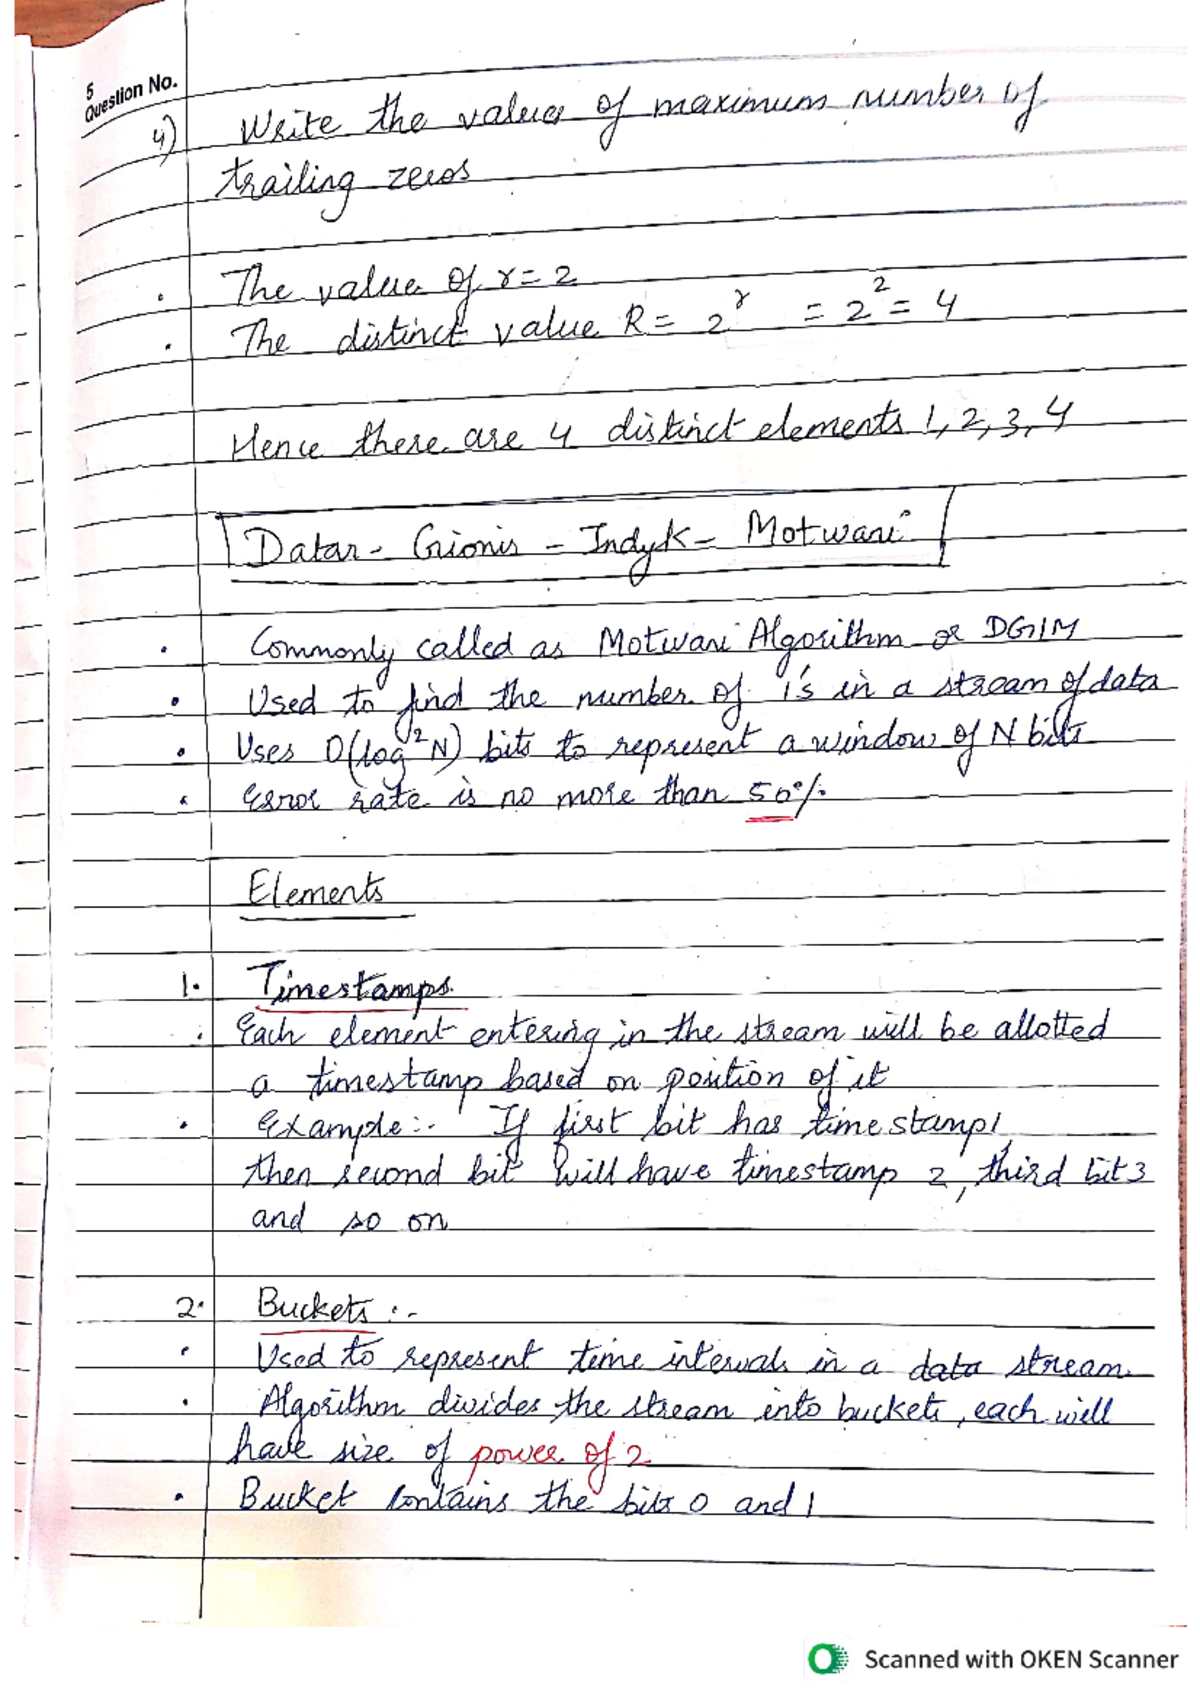 5
Question No.
4) Write the value of maximum number of
trailing zeros
. The value of r = 2
. The distinct value R = 2^r = 2^2 = 4
Hence there are 4 distinct elements 1, 2, 3, 4
Datar - Gionis - Indyk - Motwani
. Commonly called as Motwani Algorithm or DGIM
. Used to find the number of 1's in a stream of data
. Uses O(log²N) bits to represent a window of N bits
. Error rate is no more than 50%
Elements
1. Timestamps
. Each element entering in the stream will be allotted
a timestamp based on position of it
. Example :- If first bit has time stamp 1,
then second bit will have timestamp 2, third bit 3
and so on
2. Buckets :-
. Used to represent time intervals in a data stream.
. Algorithm divides the stream into buckets, each will
have size of power of 2
. Bucket contains the bits 0 and 1
Scanned with OKEN Scanner